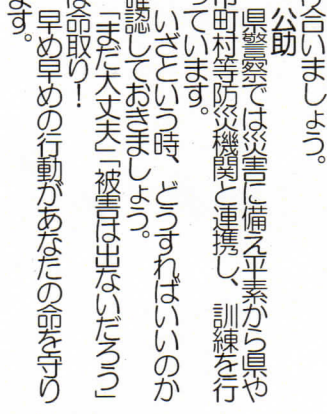 合いましょう。
公助
県警察では災害に備え平素から県や
市町村等防災機関と連携し、訓練を行
っています。
いざという時、どうすればいいのか
確認しておきましょう。
「まだ大丈夫」「被害は出ないだろう」
は命取り！
早め早めの行動があなたの命を守り
ます。